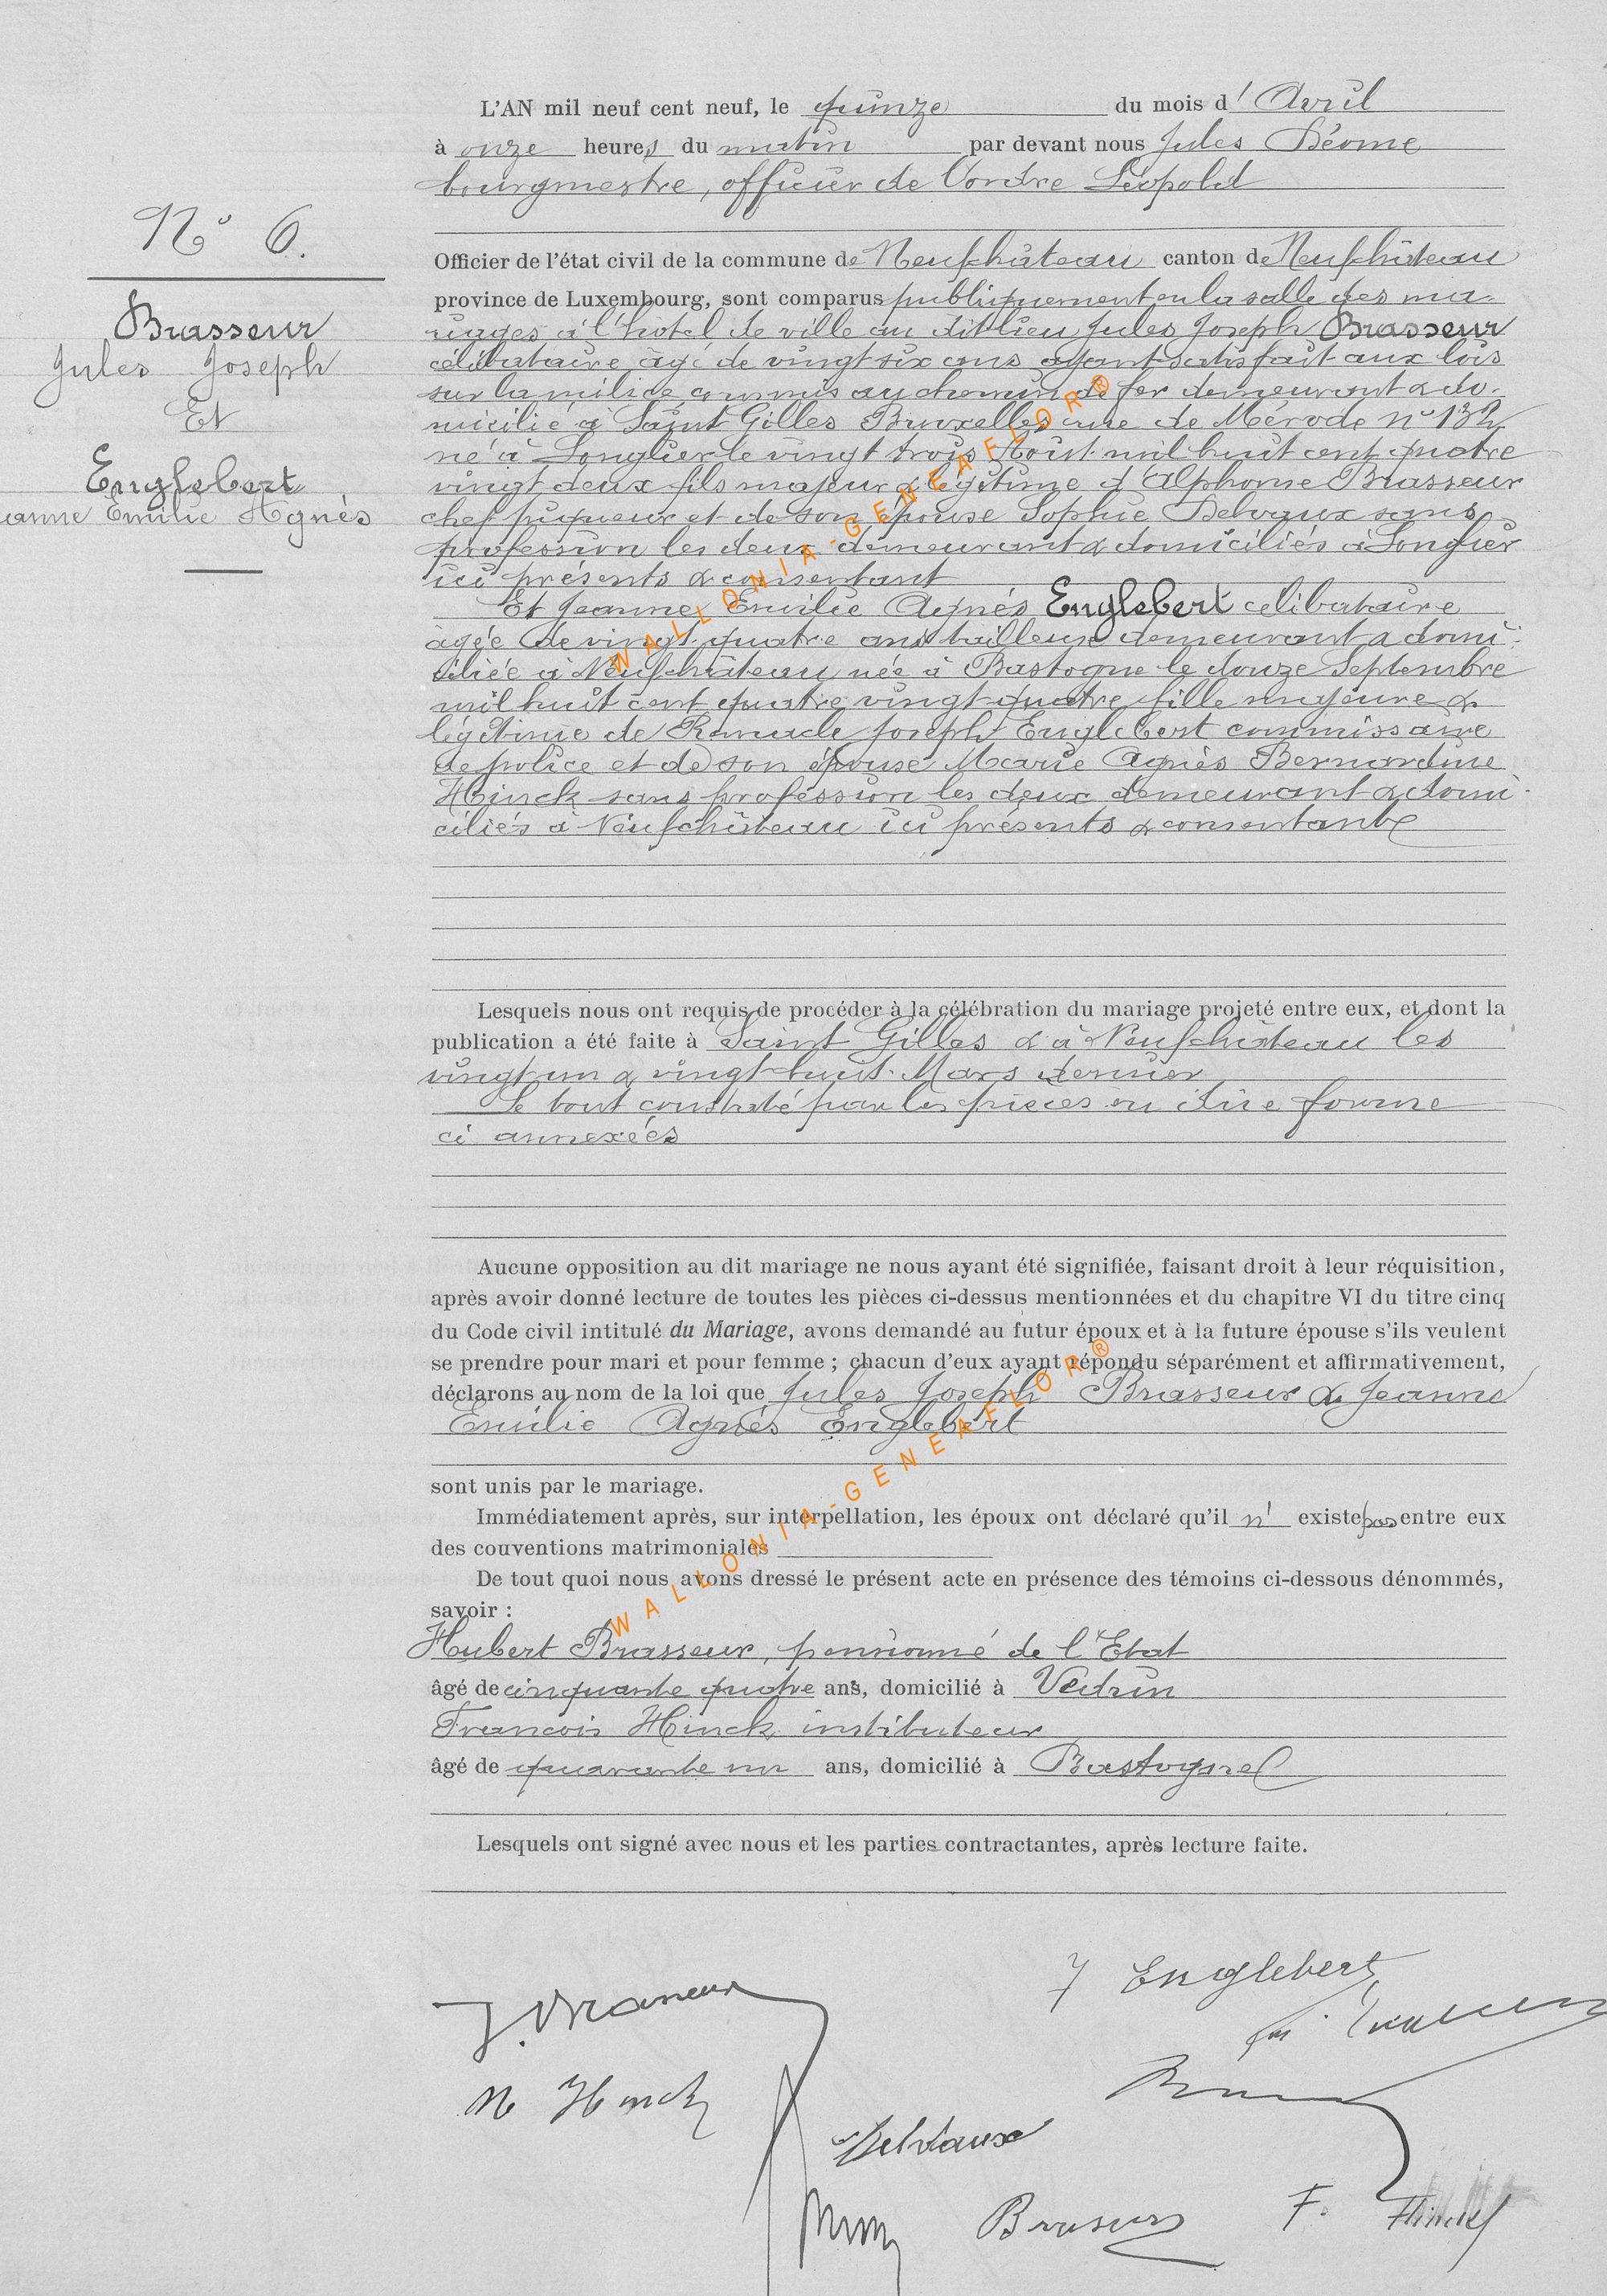 L'AN mil neuf cent neuf, le quinze du mois d' Avril
à onze heures du matin par devant nous Jules Déome
bourgmestre, officier de l'ordre Léopold
N° 6.
Officier de l'état civil de la commune de Neufchâteau canton de Neufchâteau
province de Luxembourg, sont comparus publiquement en la salle des ma-
riages à l'hotel de ville au dit lieu Jules Joseph Brasseur
célibataire âgé de vingt six ans ayant satisfait aux lois
sur la milice commis au chemin de fer demeurant & do-
micilié à Saint Gilles Bruxelles rue de Mérode n° 132
né à Longlier le vingt trois Août mil huit cent quatre
vingt deux fils majeur & légitime d'Alphonse Brasseur
chef piqueur et de son épouse Sophie Delvaux sans
profession les deux demeurant & domiciliés à Longlier
ici présents & consentant
Et Jeanne Emilie Agnès Englebert celibataire
âgée de vingt quatre ans tailleuse demeurant & domi-
ciliée à Neufchâteau née à Bastogne le douze Septembre
mil huit cent quatre vingt quatre fille majeure &
légitime de Joseph Englebert commissaire
de police et de son épouse Marie Agnès Bernardine
Hinck sans profession les deux demeurant & domi-
ciliés à Neufchâteau ici présents & consentants
Brasseur
Jules Joseph
Et
Englebert
anne Emilie Agnès
WALLONIA-GENEAFLOR®
Lesquels nous ont requis de procéder à la célébration du mariage projeté entre eux, et dont la
publication a été faite à Saint Gilles & à Neufchâteau les
vingt un & vingt huit Mars dernier
Le tout constaté par les pièces en due forme
ci annexées
Aucune opposition au dit mariage ne nous ayant été signifiée, faisant droit à leur réquisition,
après avoir donné lecture de toutes les pièces ci-dessus mentionnées et du chapitre VI du titre cinq
du Code civil intitulé du Mariage, avons demandé au futur époux et à la future épouse s'ils veulent
se prendre pour mari et pour femme ; chacun d'eux ayant répondu séparément et affirmativement,
déclarons au nom de la loi que Jules Joseph Brasseur & Jeanne
Emilie Agnès Englebert
sont unis par le mariage.
Immédiatement après, sur interpellation, les époux ont déclaré qu'il n' existe pas entre eux
des couventions matrimoniales
De tout quoi nous avons dressé le présent acte en présence des témoins ci-dessous dénommés,
savoir :
WALLONIA-GENEAFLOR®
Hubert Brasseur, pensionné de l'Etat
âgé de cinquante quatre ans, domicilié à Vedrin
Francois Hinck instituteur
âgé de quarante un ans, domicilié à Bastogne
Lesquels ont signé avec nous et les parties contractantes, après lecture faite.
J. Brasseur
J Englebert
M Hinck
Delvaux
Brasseur
F. Hinck